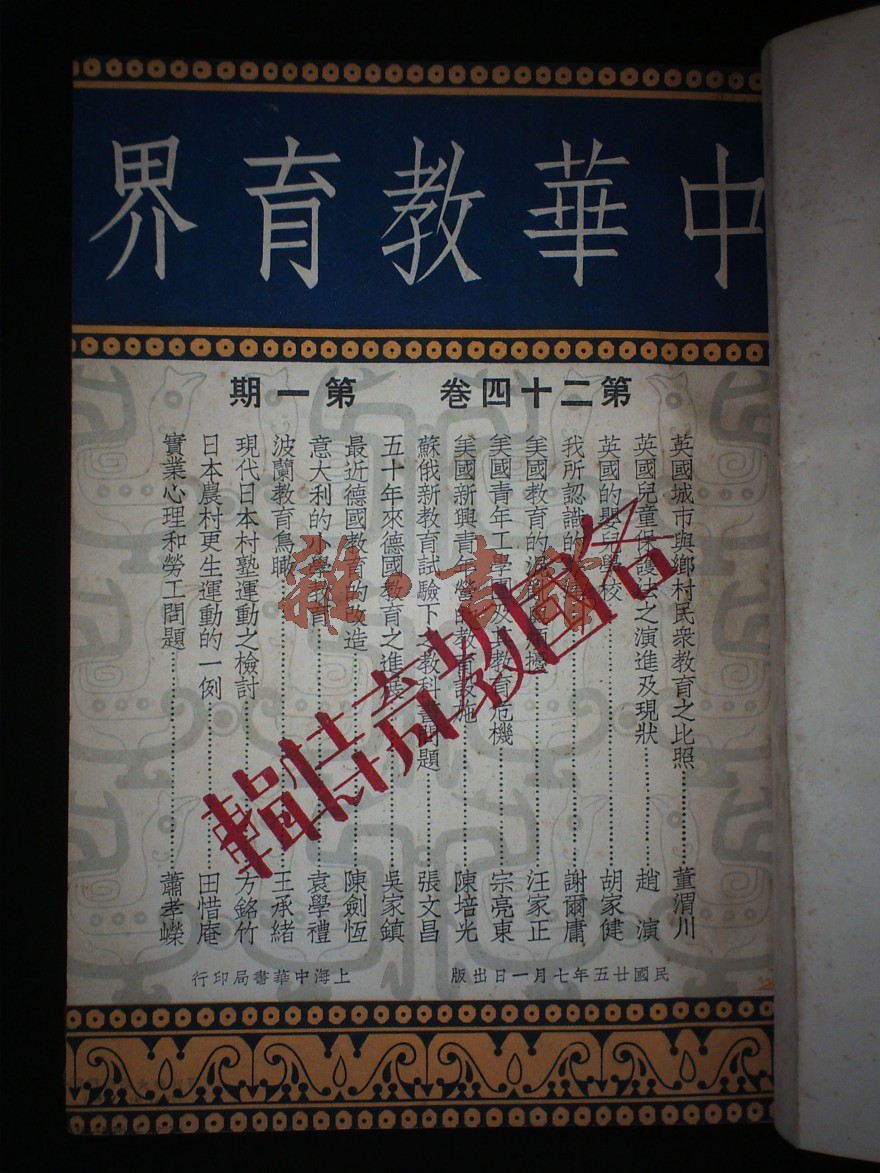 中華教育界
第二十四卷 第一期
英國城市與鄉村民衆教育之比照 董渭川
英國兒童保護法之演進及現狀 趙演
英國的嬰兒學校 胡家健
我所認識的 謝爾庸
美國教育的 汪家正
美國青年工學團及其教育危機 宗亮東
美國新興青年營的教育設施 陳培光
蘇俄新教育試驗下 教科書問題 張文昌
五十年來德國教育之進展 吳家鎮
最近德國教育的改造 陳劍恆
意大利的小學教育 袁學禮
波蘭教育鳥瞰 王承緒
現代日本村塾運動之檢討 方銘竹
日本農村更生運動的一例 田惜庵
實業心理和勞工問題 蕭孝嶸
各國教育特輯
雜·書館
民國廿五年七月一日出版 上海中華書局印行